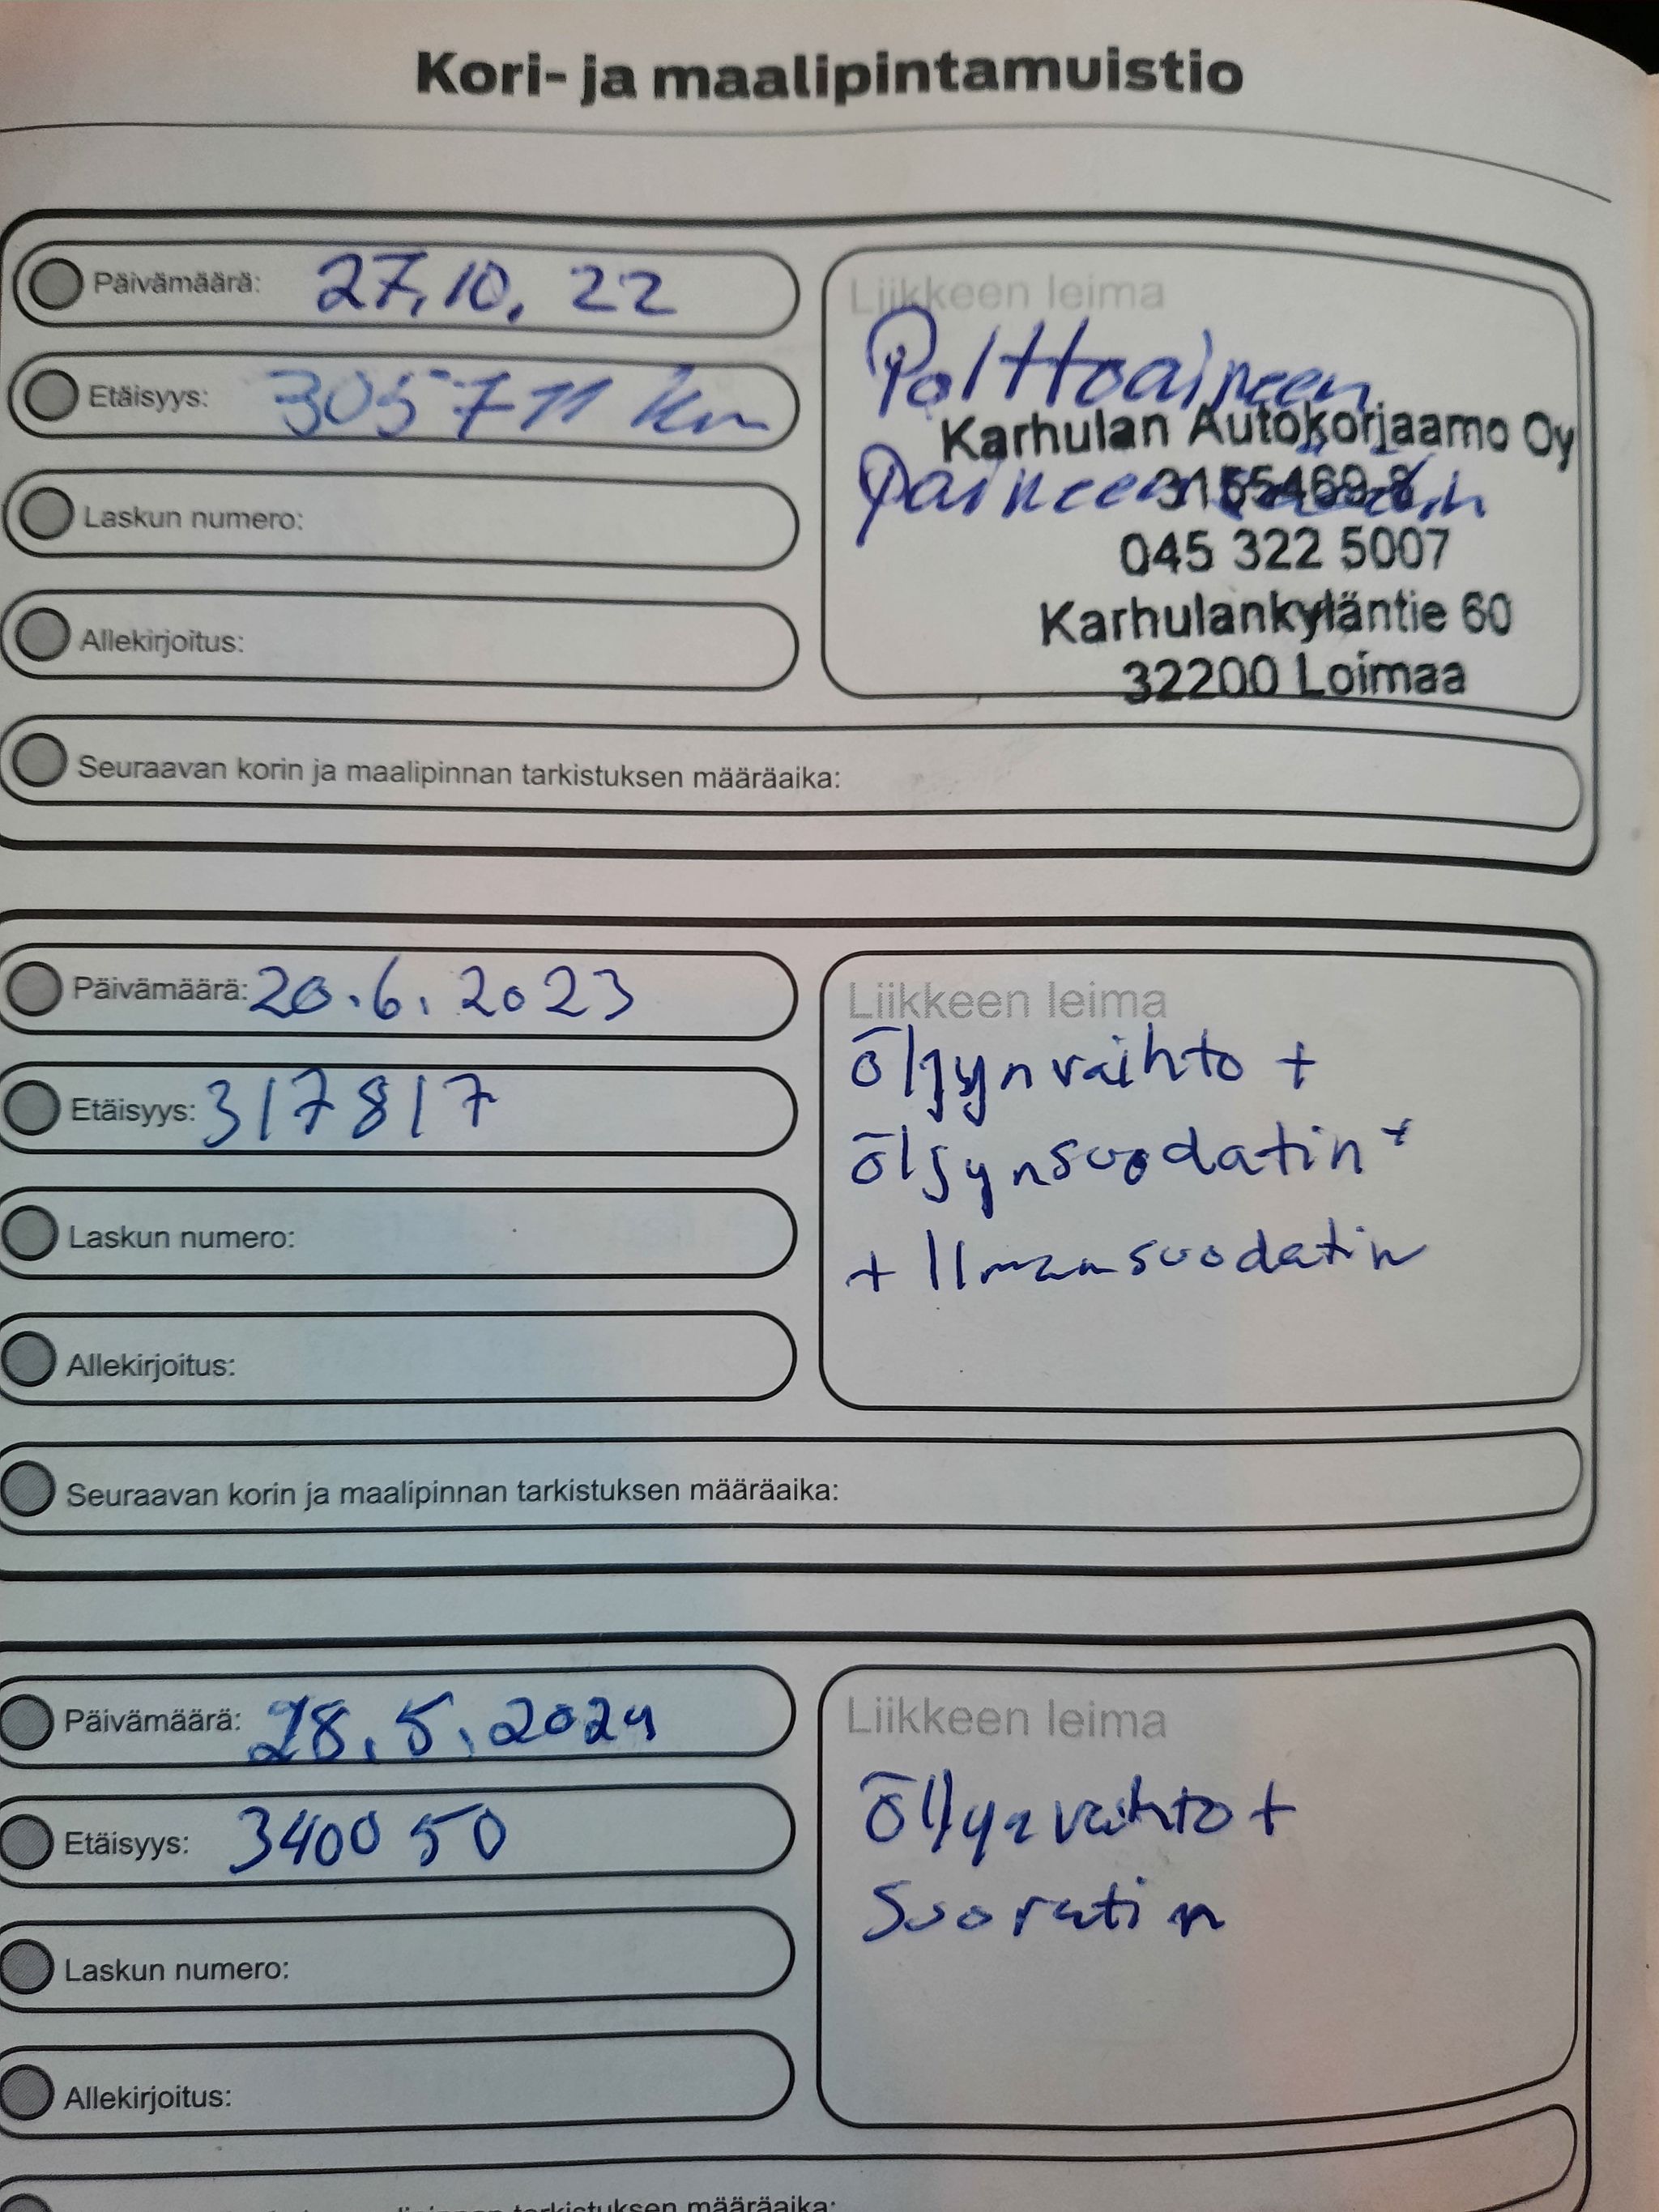 Kori- ja maalipintamuistio
Päivämäärä: 27.10. 22
Etäisyys: 305711 km
Laskun numero:
Allekirjoitus:
Liikkeen leima
Polttoaineen
Karhulan Autokorjaamo Oy
Paineen
3155469-8
045 322 5007
Karhulankyläntie 60
32200 Loimaa
Seuraavan korin ja maalipinnan tarkistuksen määräaika:
Päivämäärä: 20.6. 2023
Etäisyys: 317817
Laskun numero:
Allekirjoitus:
Liikkeen leima
öljynvaihto +
öljynsuodatin +
+ Ilmansuodatin
Seuraavan korin ja maalipinnan tarkistuksen määräaika:
Päivämäärä: 28.5.2024
Etäisyys: 340050
Laskun numero:
Allekirjoitus:
Liikkeen leima
Öljynvaihto +
Suoratin
tarkistuksen määräaika: